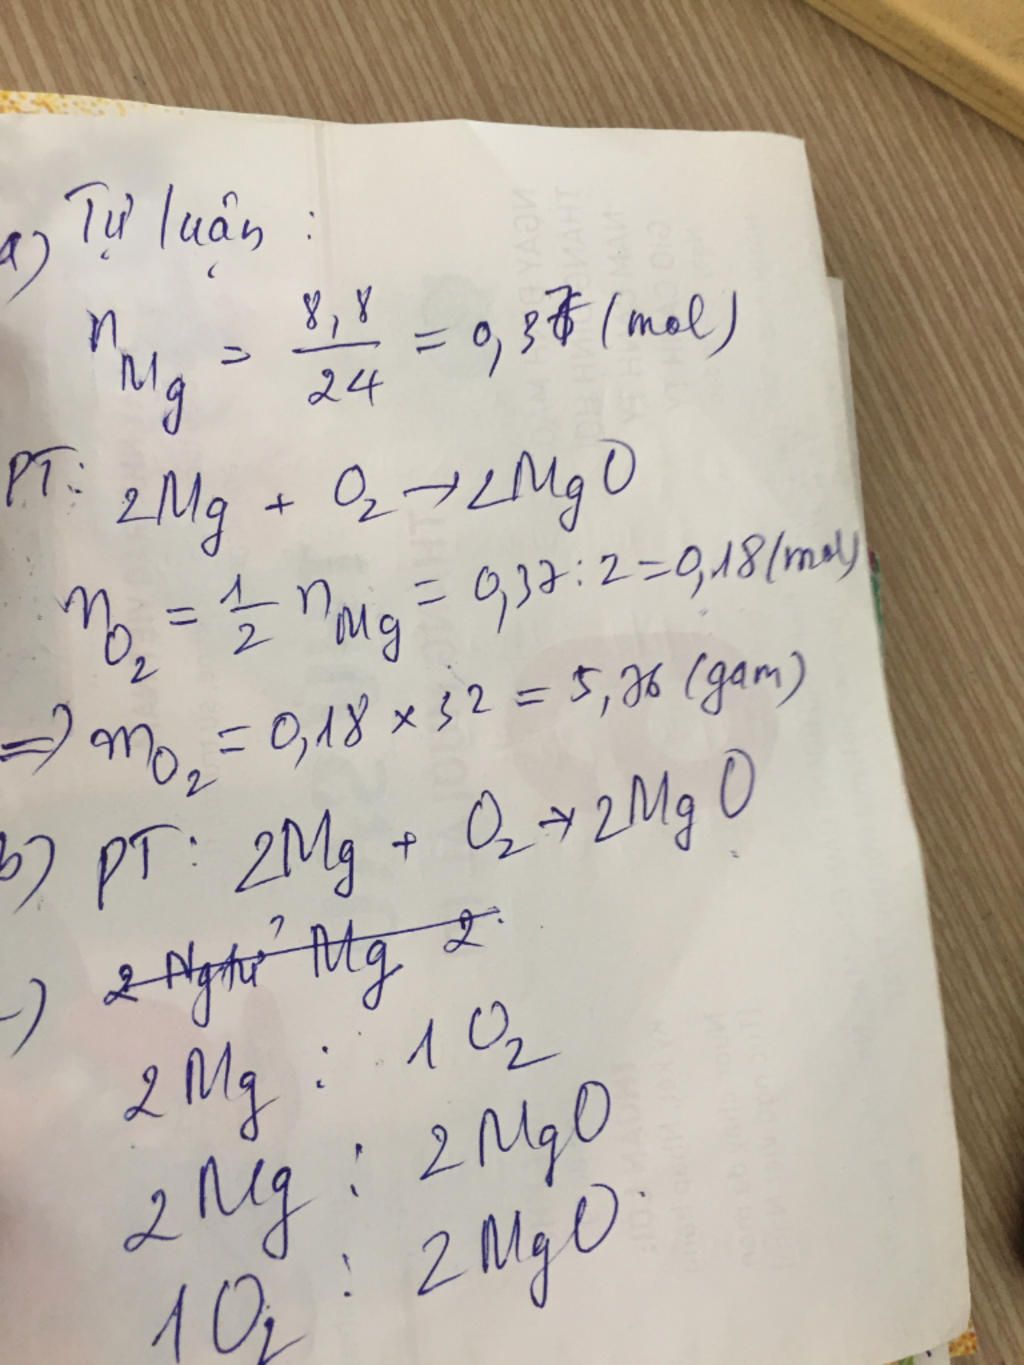 Tự luận:
a) n_Mg = 8,8/24 = 0,37 (mol)
PT: 2Mg + O₂ → 2MgO
n_O₂ = 1/2 n_Mg = 0,37 : 2 = 0,18 (mol)
=> m_O₂ = 0,18 × 32 = 5,76 (gam)
b) PT: 2Mg + O₂ → 2MgO
2 Ngtử Mg 2
2Mg : 1O₂
2Mg : 2MgO
1O₂ : 2MgO